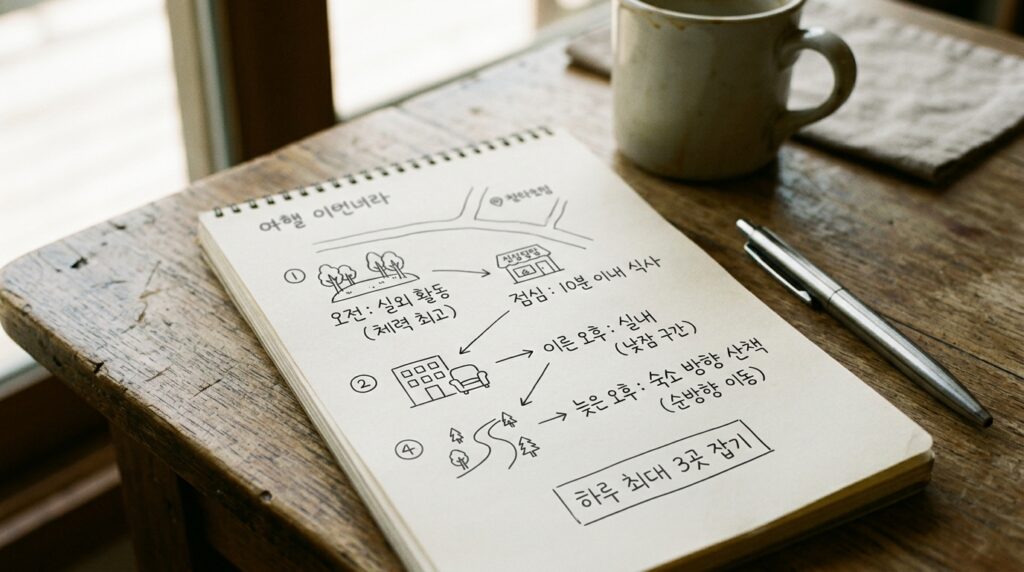 여행 이언너라
①
오전: 실외 활동
(체력 최고)
점심: 10분 이내 식사
②
이른 오후: 실내
(낮잠 구간)
④
늦은 오후: 숙소 방향 산책
(순방향 이동)
하루 최대 3곳 잡기